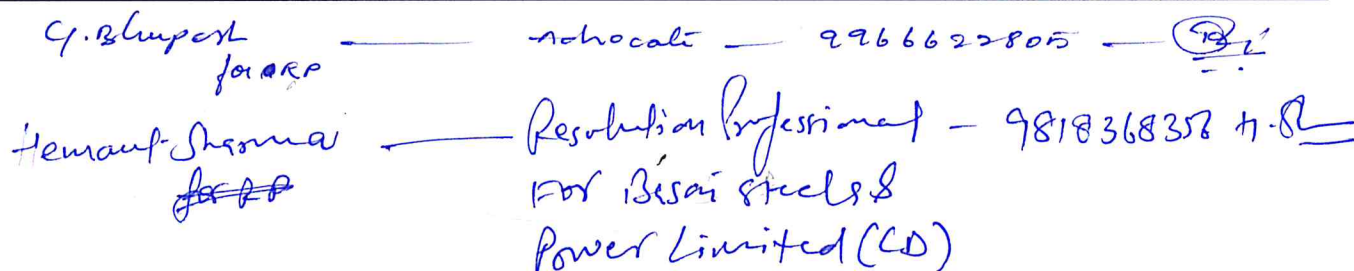 G. Bhupesh — Advocate — 9966622805 —
for RP
Hemant Sharma — Resolution Professional - 9818368358 H.Sh
for RP For Bisai steels &
Power Limited (CD)